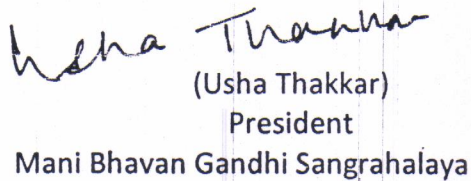 Usha Thakkar
(Usha Thakkar)
President
Mani Bhavan Gandhi Sangrahalaya